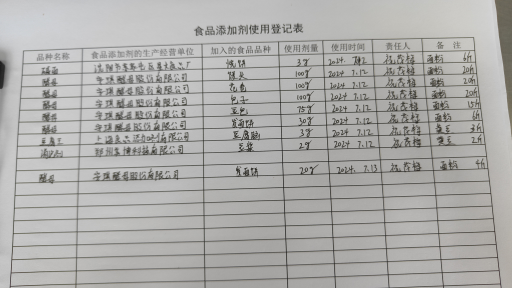 食品添加剂使用登记表
品种名称 食品添加剂的生产经营单位 加入的食品品种 使用剂量 使用时间 责任人 备 注
烧饼 3g 2024. 面粉 6斤
酵母 安琪酵母股份有限公司 馒头 100g 2024 7.12 面粉 20斤
酵母 安琪酵母股份有限公司 花卷 100g 2024 7.12 面粉 20斤
酵母 安琪酵母股份有限公司 包子 100g 2024 7.12 面粉 20斤
酵母 安琪酵母股份有限公司 豆包 75g 2024 7.12 面粉 15斤
酵母 安琪酵母股份有限公司 发面饼 30g 2024 7.12 面粉 6斤
豆腐王 有限公司 豆腐脑 3g 2024 7.12 黄豆 3斤
消泡剂 有限公司 豆浆 2g 2024 7.12 黄豆 2斤
酵母 安琪酵母股份有限公司 发面饼 20g 2024. 7.13 面粉 4斤